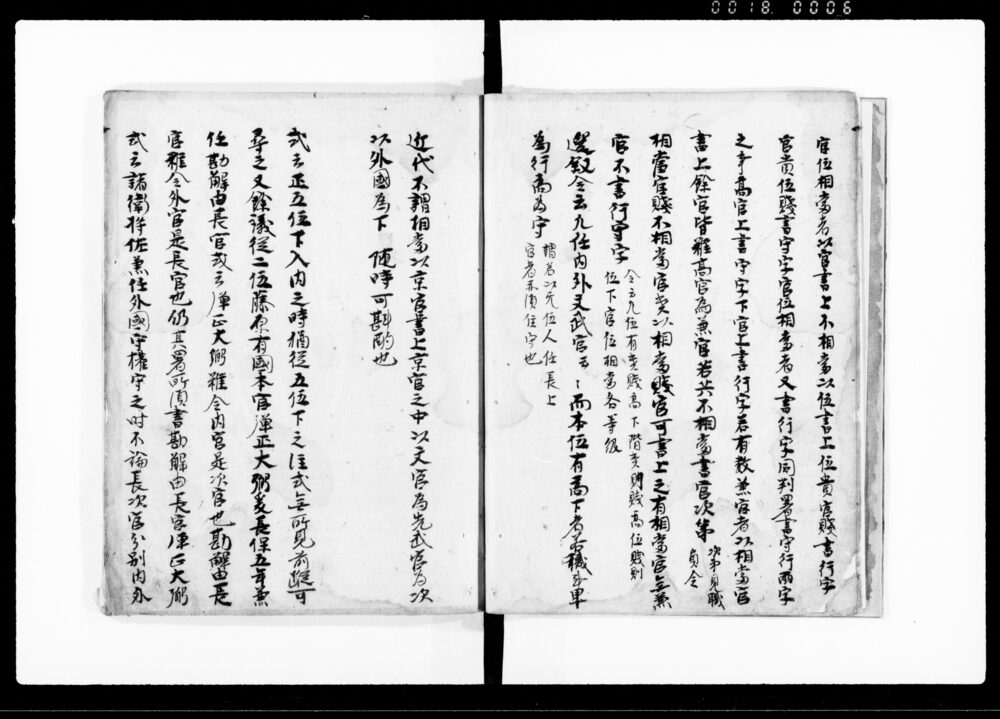 0018 0006
官位相當者以官書上不相當以位書上位貴官賤書行字
官貴位賤書守字官位相當者又書行字同判署書守行両字
之事高官上書守字下官上書行字若有数兼官者以相當官
書上餘官皆雖高官為兼官若共不相當書官次第 次第見職
員令
相當官賤不相當官貴以相當賤官可書上之有相當官無兼
官不書行守字 令云凡位有貴賤高下階貴則職高位賤則
位下官位相當各等級
選叙令云凡任内外文武官云々而本位有高下者若職事卑
為行高為守 謂若以元位人任長上
官者不須任守也
近代不謂相當以京官書上京官之中以文官為先武官為次
以外國為下 随時可斟酌也
或云正五位下入内之時猶從五位下之注或無所見前蹤可
尋之又餘議從二位藤原有國本官弾正大弼爰長保五年兼
任勘解由長官或云弾正大弼雖令内官是次官也勘解由長
官雖令外官是長官也仍其署所須書勘解由長官弾正大弼
或云諸衛将佐兼任外國守權守之時不論長次官分別内外